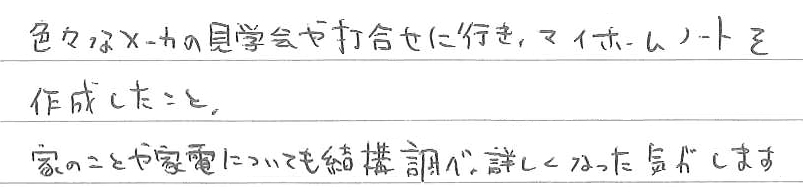 色々なメーカの見学会や打合せに行き、マイホームノートを
作成したこと。
家のことや家電についても結構調べ、詳しくなった気がします